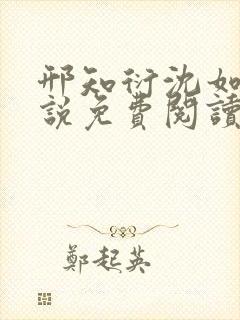 邢知衍沈如
說免費閱讀
鄭起英